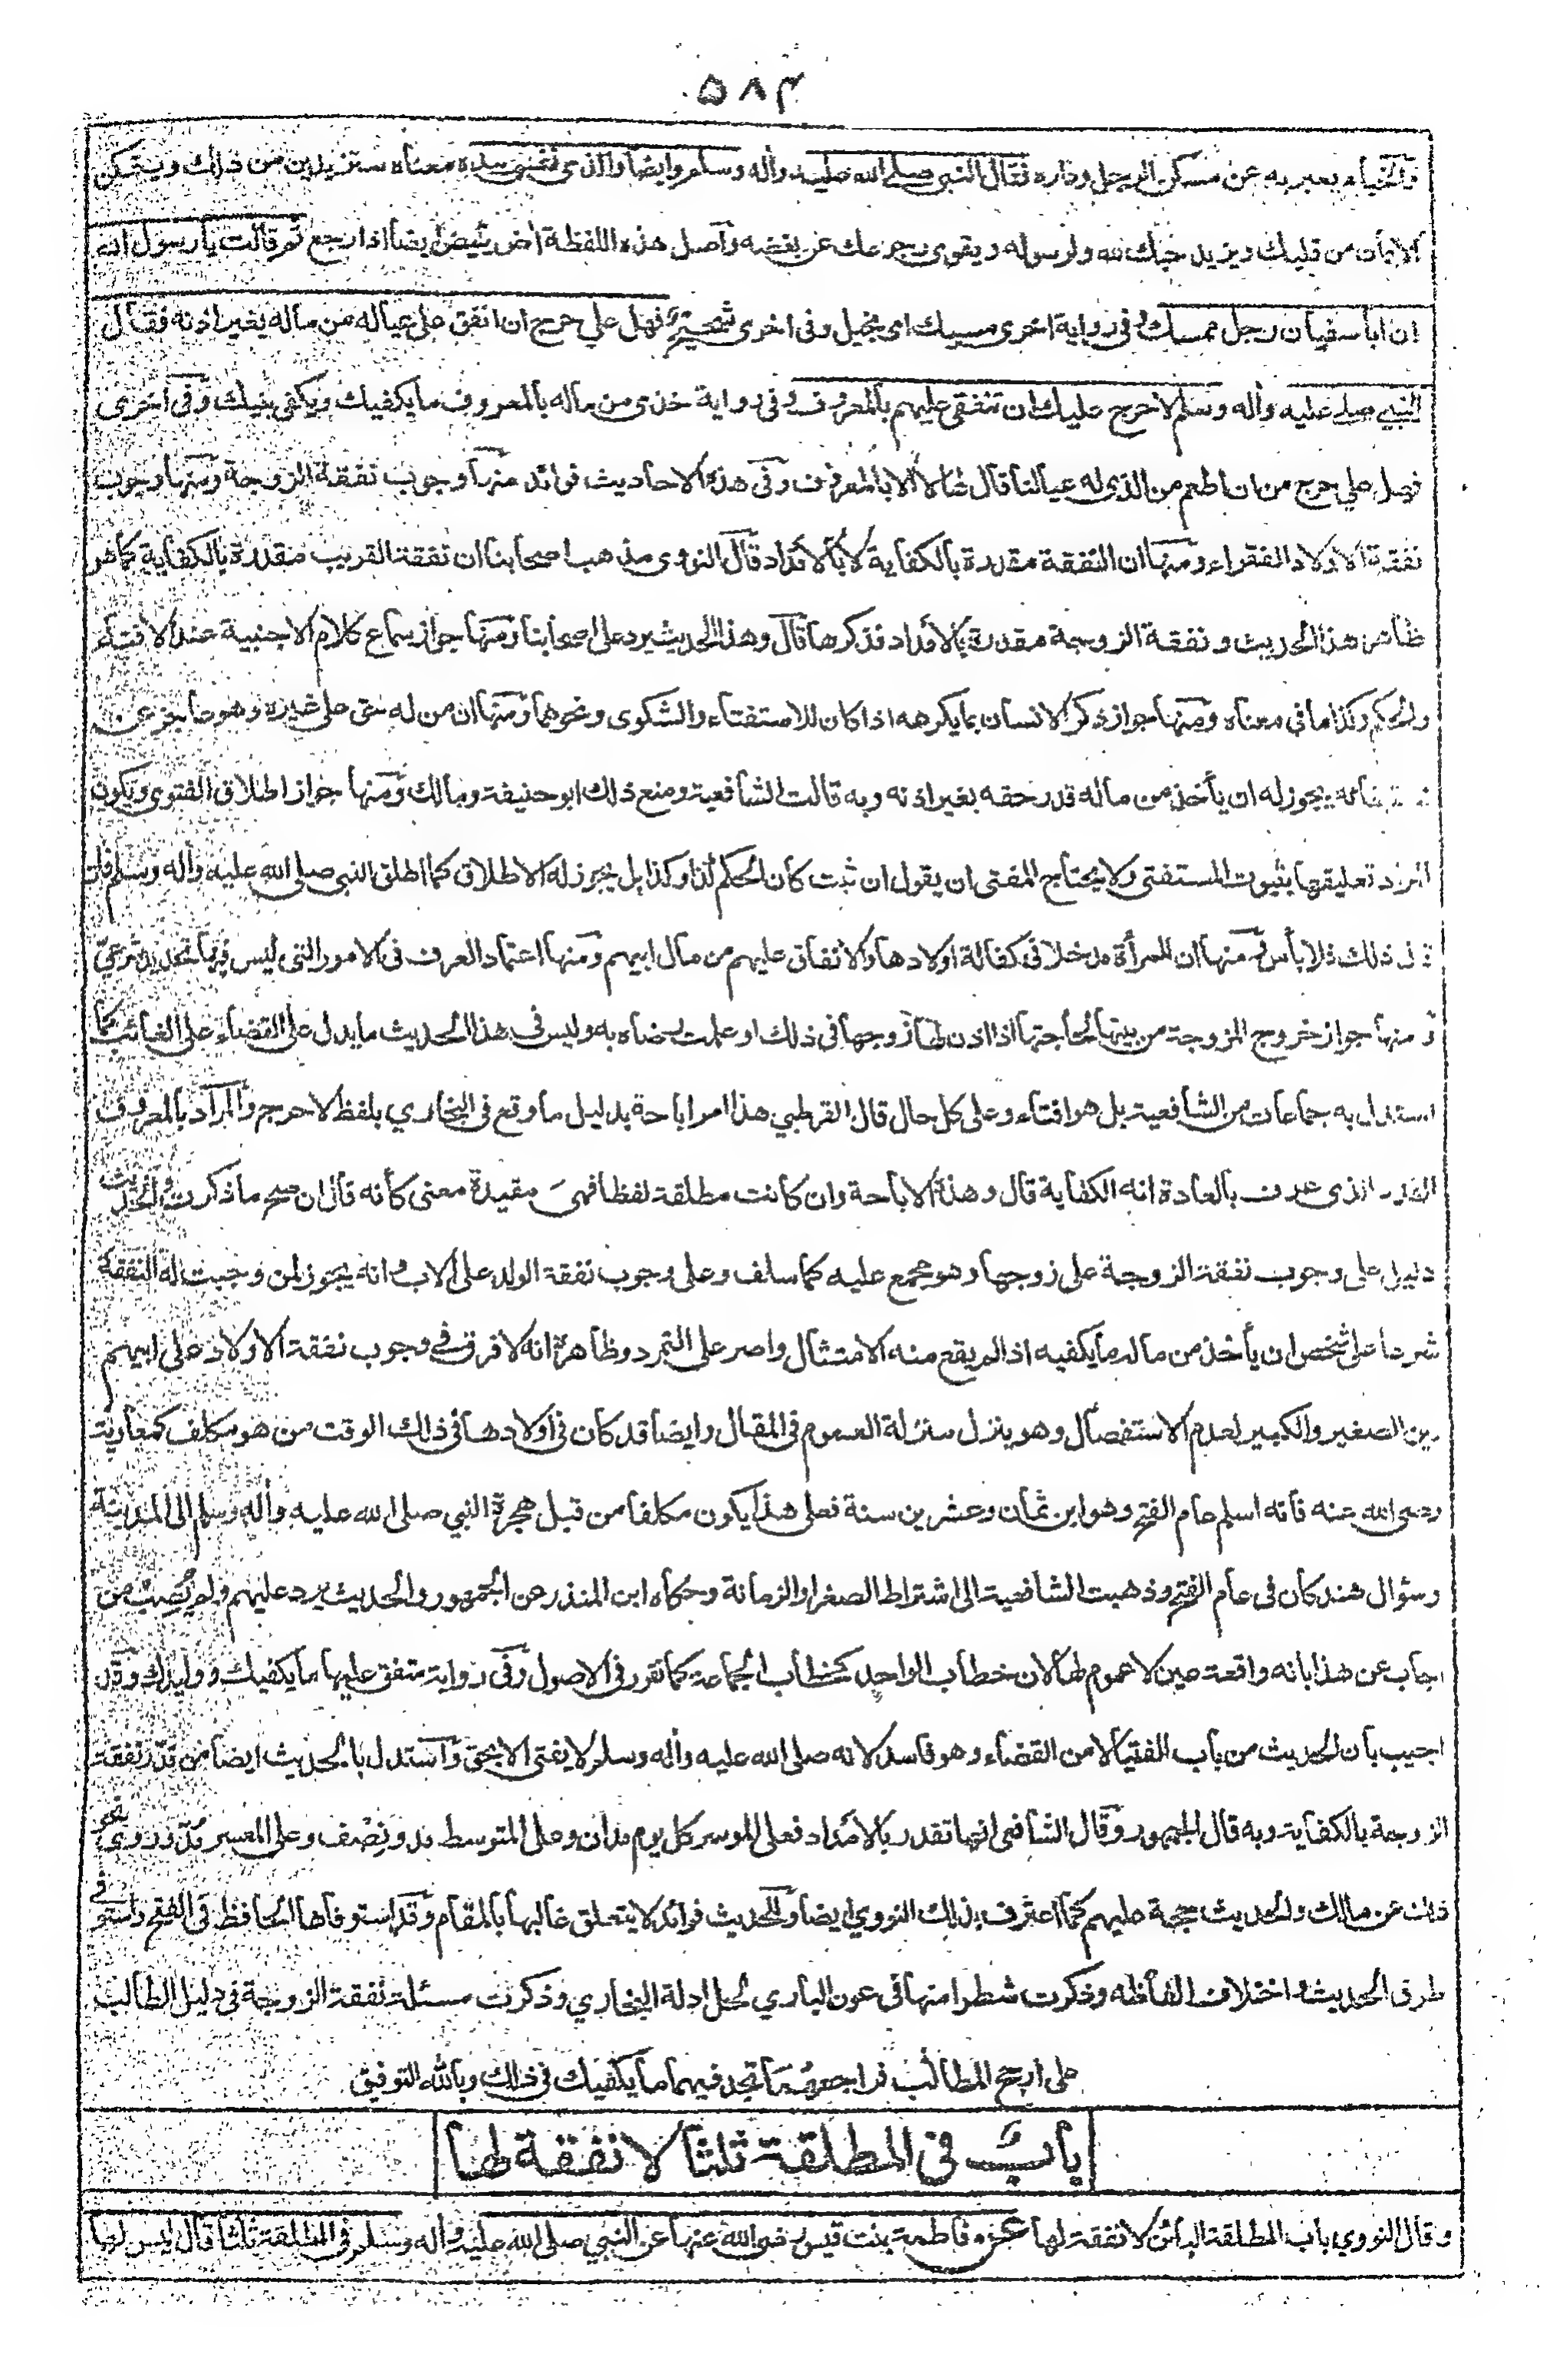 ٥٨٣
والخباء يعبر به عن مسكن الرجل وداره فقال النبي صلى الله عليه وأله وسلم وايضا والذي نفسي بيده معناه ستزيدين من ذلك ويتمكن
الايمان من قلبك ويزيد حبك لله ولرسوله ويقوى رجوعك عن بغضه وأصل هذه اللفظة أض يئيض أيضا اذا رجع ثم قالت يا رسول الله
ان ابا سفيان رجل ممسك وفي رواية اخرى مسيك اى بخيل وفى اخرى شحيح فهل علي حرج ان انفق على عياله من ماله بغير اذنه فقال
النبي صلى عليه وأله وسلم لا حرج عليك ان تنفقى عليهم بالمعروف وفي رواية خذى من ماله بالمعروف ما يكفيك ويكفي بنيك وفى اخرى
فهل علي حرج من ان اطعم من الذى له عيالنا قال لها لا الا بالمعروف وفى هذه الاحاديث فوائد منها وجوب نفقة الزوجة ومنها وجوب
نفقة الاولاد الفقراء ومنها ان النفقة مقدرة بالكفاية لا بالامداد قال النووي مذهب اصحابنا ان نفقة القريب مقدرة بالكفاية كما هو
ظاهر هذا الحديث و نفقة الزوجة مقدرة بالامداد فذكرها قال وهذا الحديث يرد على اصحابنا ومنها جواز سماع كلام الاجنبية عند الافتاء
والحكم وكذا ما في معناه ومنها جواز ذكر الانسان بما يكرهه اذا كان للاستفتاء والشكوى ونحوهما ومنها ان من له حق على غيره وهو عاجز عن
استيفائه يجوز له ان يأخذ من ماله قدر حقه بغير اذنه وبه قالت الشافعية ومنع ذلك ابو حنيفة ومالك ومنها جواز اطلاق الفتوى ويكون
المراد تعليقها بثبوت المستفتى ولا يحتاج المفتى ان يقول ان ثبت كان الحكم كذا وكذا بل يجوز له الاطلاق كما اطلق النبي صلى الله عليه وأله وسلم فان
قال ذلك فلا بأس ومنها ان للمرأة مدخلا فى كفالة أولادها والانفاق عليهم من مال ابيهم ومنها اعتماد العرف فى الامور التى ليس فيها تحديد شرعي
ومنها جواز خروج المزوجة من بيتها لحاجتها اذا اذن لها زوجها فى ذلك او علمت رضاه به وليس فى هذا الحديث ما يدل على القضاء على الغائب كما
استدل به جماعات من الشافعية بل هو افتاء وعلى كل حال قال القرطبي هذا امر اباحة بدليل ما وقع فى البخاري بلفظ لا حرج والمراد بالمعروف
القدر الذى عرف بالعادة انه الكفاية قال وهذه الاباحة وان كانت مطلقة لفظا فهي مقيدة معنى كأنه قال ان صح ما ذكرت والحديث
دليل على وجوب نفقة الزوجة على زوجها وهو مجمع عليه كما سلف وعلى وجوب نفقة الولد على الاب وانه يجوز لمن وجبت له النفقة
شرعا على شخص ان يأخذ من ماله ما يكفيه اذا لم يقع منه الامتثال واصر على التمرد وظاهره انه لا فرق في وجوب نفقة الاولاد على ابيهم
بين الصغير والكبير لعدم الاستفصال وهو ينزل منزلة العموم فى المقال وايضا قد كان فى اولادها فى ذلك الوقت من هو مكلف كمعاوية
رضى الله عنه فانه اسلم عام الفتح وهو ابن ثمان وعشرين سنة فعلى هذا يكون مكلفا من قبل هجرة النبي صلى الله عليه وأله وسلم الى المدينة
وسؤال هند كان فى عام الفتح وذهبت الشافعية الى اشتراط الصغر او الزمانة وحكاه ابن المنذر عن الجمهور والحديث يرد عليهم ولم يُصِب من
اجاب عن هذا بانه واقعة عين لا عموم لها لان خطاب الواحد كخطاب الجماعة كما تقرر فى الاصول وفى رواية متفق عليها ما يكفيك وولدك وقد
اجيب بان الحديث من باب الفتيا لا من القضاء وهو فاسد لانه صلى الله عليه وأله وسلم لا يفتى الا بحق واستدل بالحديث ايضا من قدر نفقة
الزوجة بالكفاية وبه قال الجمهور وقال الشافعي انها تقدر بالامداد فعلى الموسر كل يوم مدان وعلى المتوسط مد ونصف وعلى المعسر مُدّ وروي نحو
ذلك عن مالك والحديث حجة عليهم كما اعترف بذلك النووي ايضا وللحديث فوائد لا يتعلق غالبها بالمقام وقد استوفاها الحافظ فى الفتح واستوفى
طرق الحديث واختلاف الفاظه وذكرت شطرا منها فى عون الباري لحل ادلة البخاري وذكرت مسئلة نفقة الزوجة فى دليل الطالب
على ارجح المطالب فراجعهما تجد فيهما ما يكفيك فى ذلك وبالله التوفيق
باب فى المطلقة ثلثا لا نفقة لها
وقال النووي باب المطلقة البائن لا نفقة لها عن فاطمة بنت قيس رضي الله عنها عن النبي صلى الله عليه وأله وسلم فى المطلقة ثلثا قال ليس لها